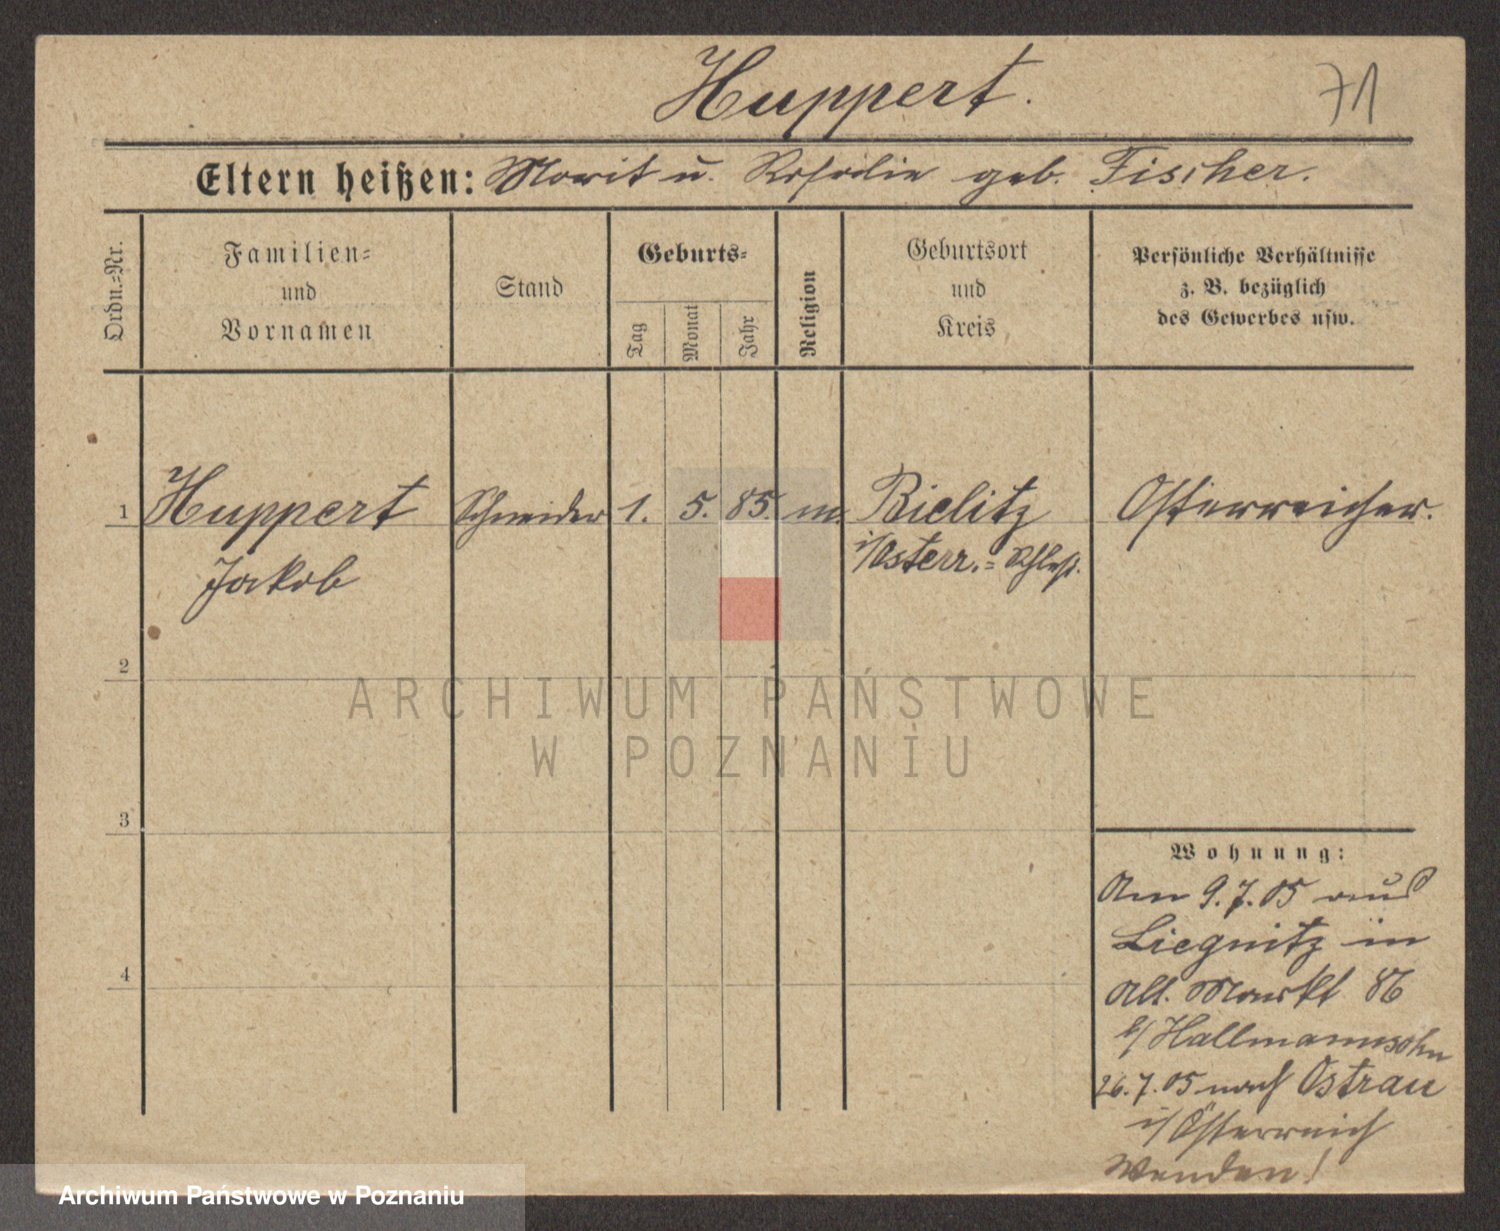 Huppert.
71
Eltern heißen: Morit u. Rosalie geb. Fischer.
Ordn.-Nr.
Familien-
und
Vornamen
Stand
Geburts-
Tag
Monat
Jahr
Religion
Geburtsort
und
Kreis
Persönliche Verhältnisse
z. B. bezüglich
des Gewerbes usw.
1 Huppert Schneider 1. 5. 85. m. Bielitz Österreicher.
Jakob i/Österr.=Schles.
2
3
4
ARCHIWUM PAŃSTWOWE
W POZNANIU
Wohnung:
Am 9.7.05 aus
Liegnitz in
Alt. Markt 86
b/ Hallmannsohn
26.7.05 nach Ostrau
i/Österreich
Wenden!
Archiwum Państwowe w Poznaniu